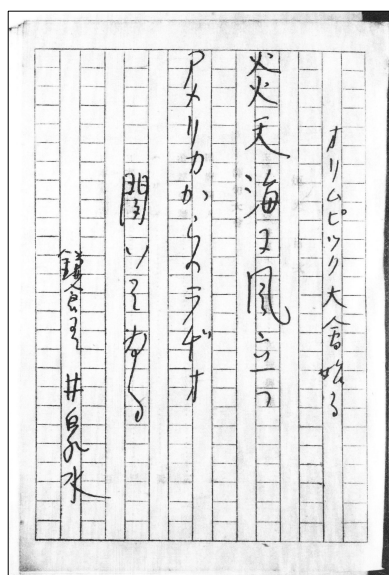 オリムピック大會始る
炎天海に風立つ
アメリカからのラヂオ
聞いてゐる
鎌倉にて 井泉水